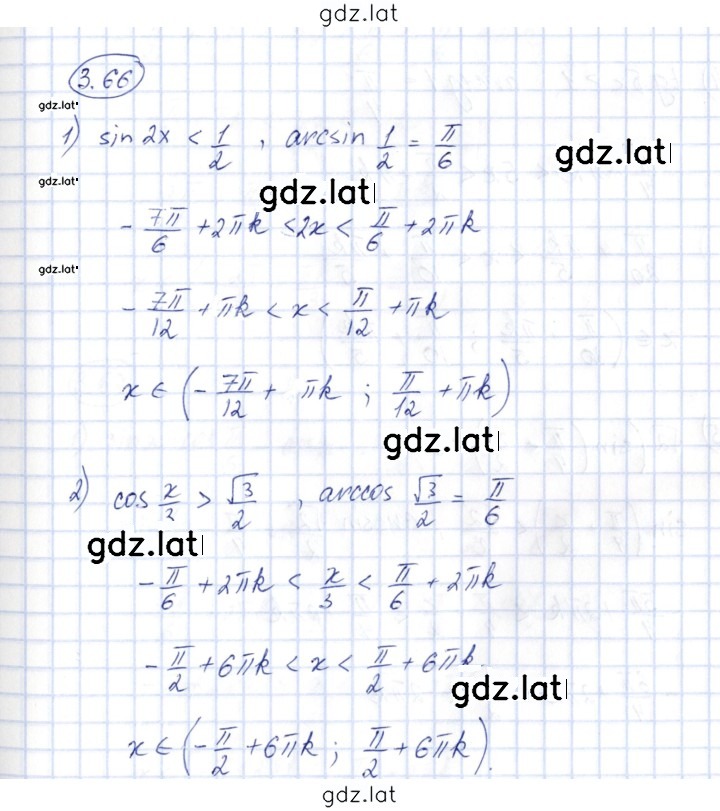 gdz.lat
3.66
gdz.lat
1) sin 2x < 1/2 , arcsin 1/2 = π/6
gdz.lat
gdz.lat
gdz.lat
- 7π/6 + 2πk < 2x < π/6 + 2πk
gdz.lat
- 7π/12 + πk < x < π/12 + πk
x ∈ (- 7π/12 + πk ; π/12 + πk)
gdz.lat
2) cos x/3 > √3/2 , arccos √3/2 = π/6
gdz.lat
- π/6 + 2πk < x/3 < π/6 + 2πk
- π/2 + 6πk < x < π/2 + 6πk.
gdz.lat
x ∈ (- π/2 + 6πk ; π/2 + 6πk).
gdz.lat